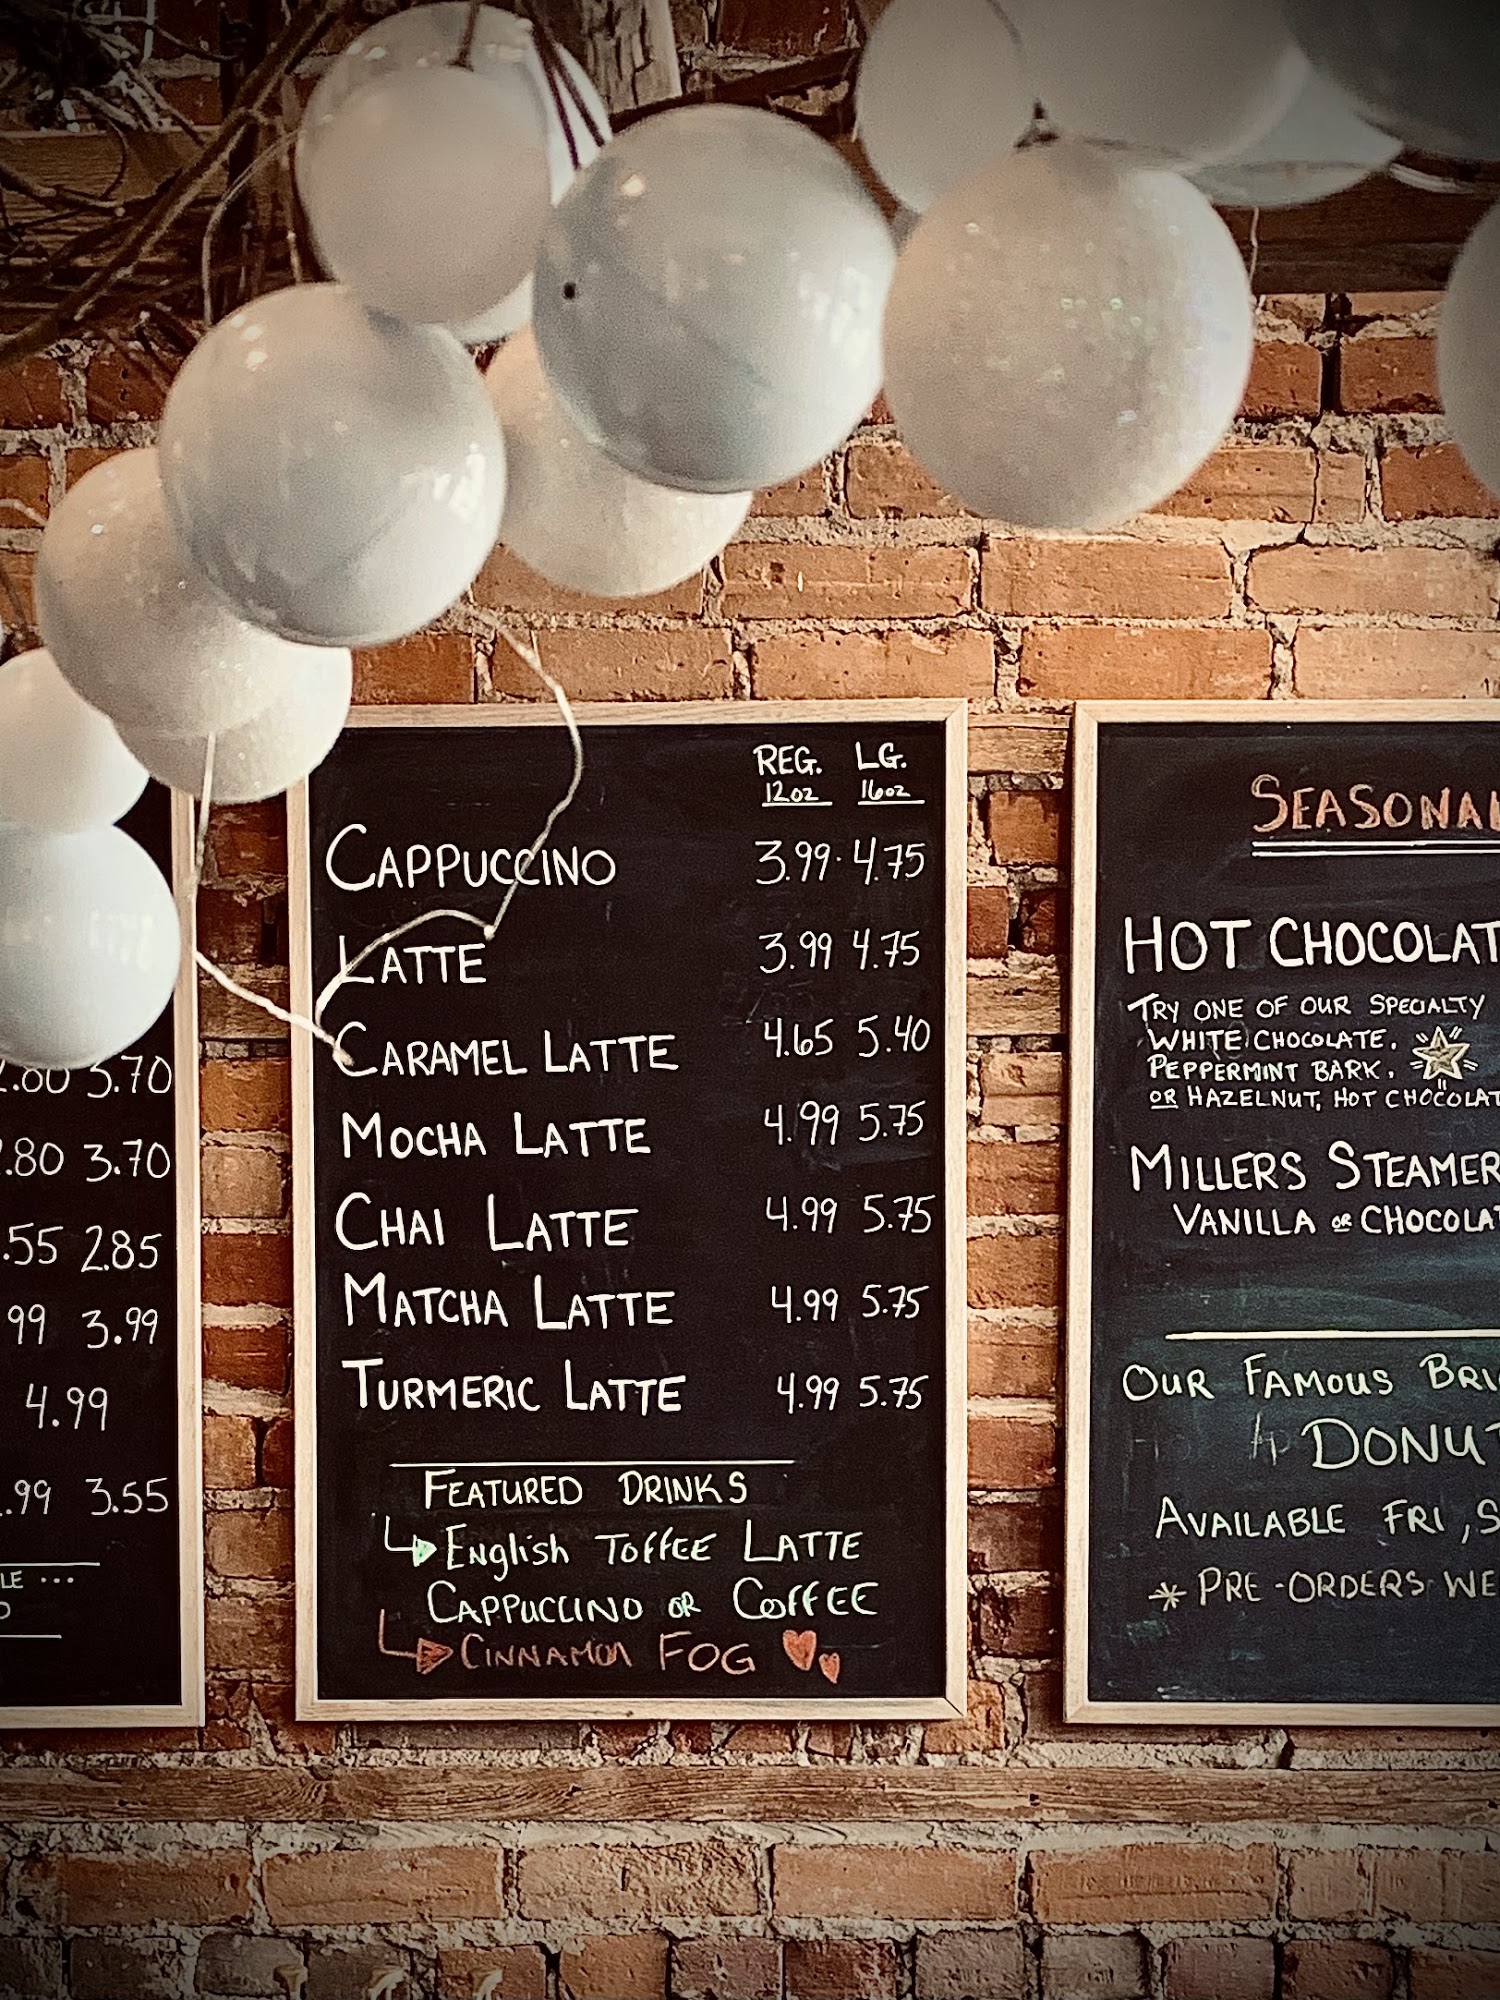 3.70
.80 3.70
.55 2.85
99 3.99
4.99
.99 3.55
REG. LG.
12oz 16oz
CAPPUCCINO 3.99 4.75
LATTE 3.99 4.75
CARAMEL LATTE 4.65 5.40
MOCHA LATTE 4.99 5.75
CHAI LATTE 4.99 5.75
MATCHA LATTE 4.99 5.75
TURMERIC LATTE 4.99 5.75
FEATURED DRINKS
ENglish TOFFEE LATTE
CAPPUCCINO OR COFFEE
CINNAMON FOG
SEASONAL
HOT CHOCOLAT
TRY ONE OF OUR SPECIALTY
WHITE CHOCOLATE.
PEPPERMINT BARK.
OR HAZELNUT, HOT CHOCOLAT
MILLERS STEAMER
VANILLA OR CHOCOLAT
OUR FAMOUS BRI
DONUT
AVAILABLE FRI, S
* PRE-ORDERS WE